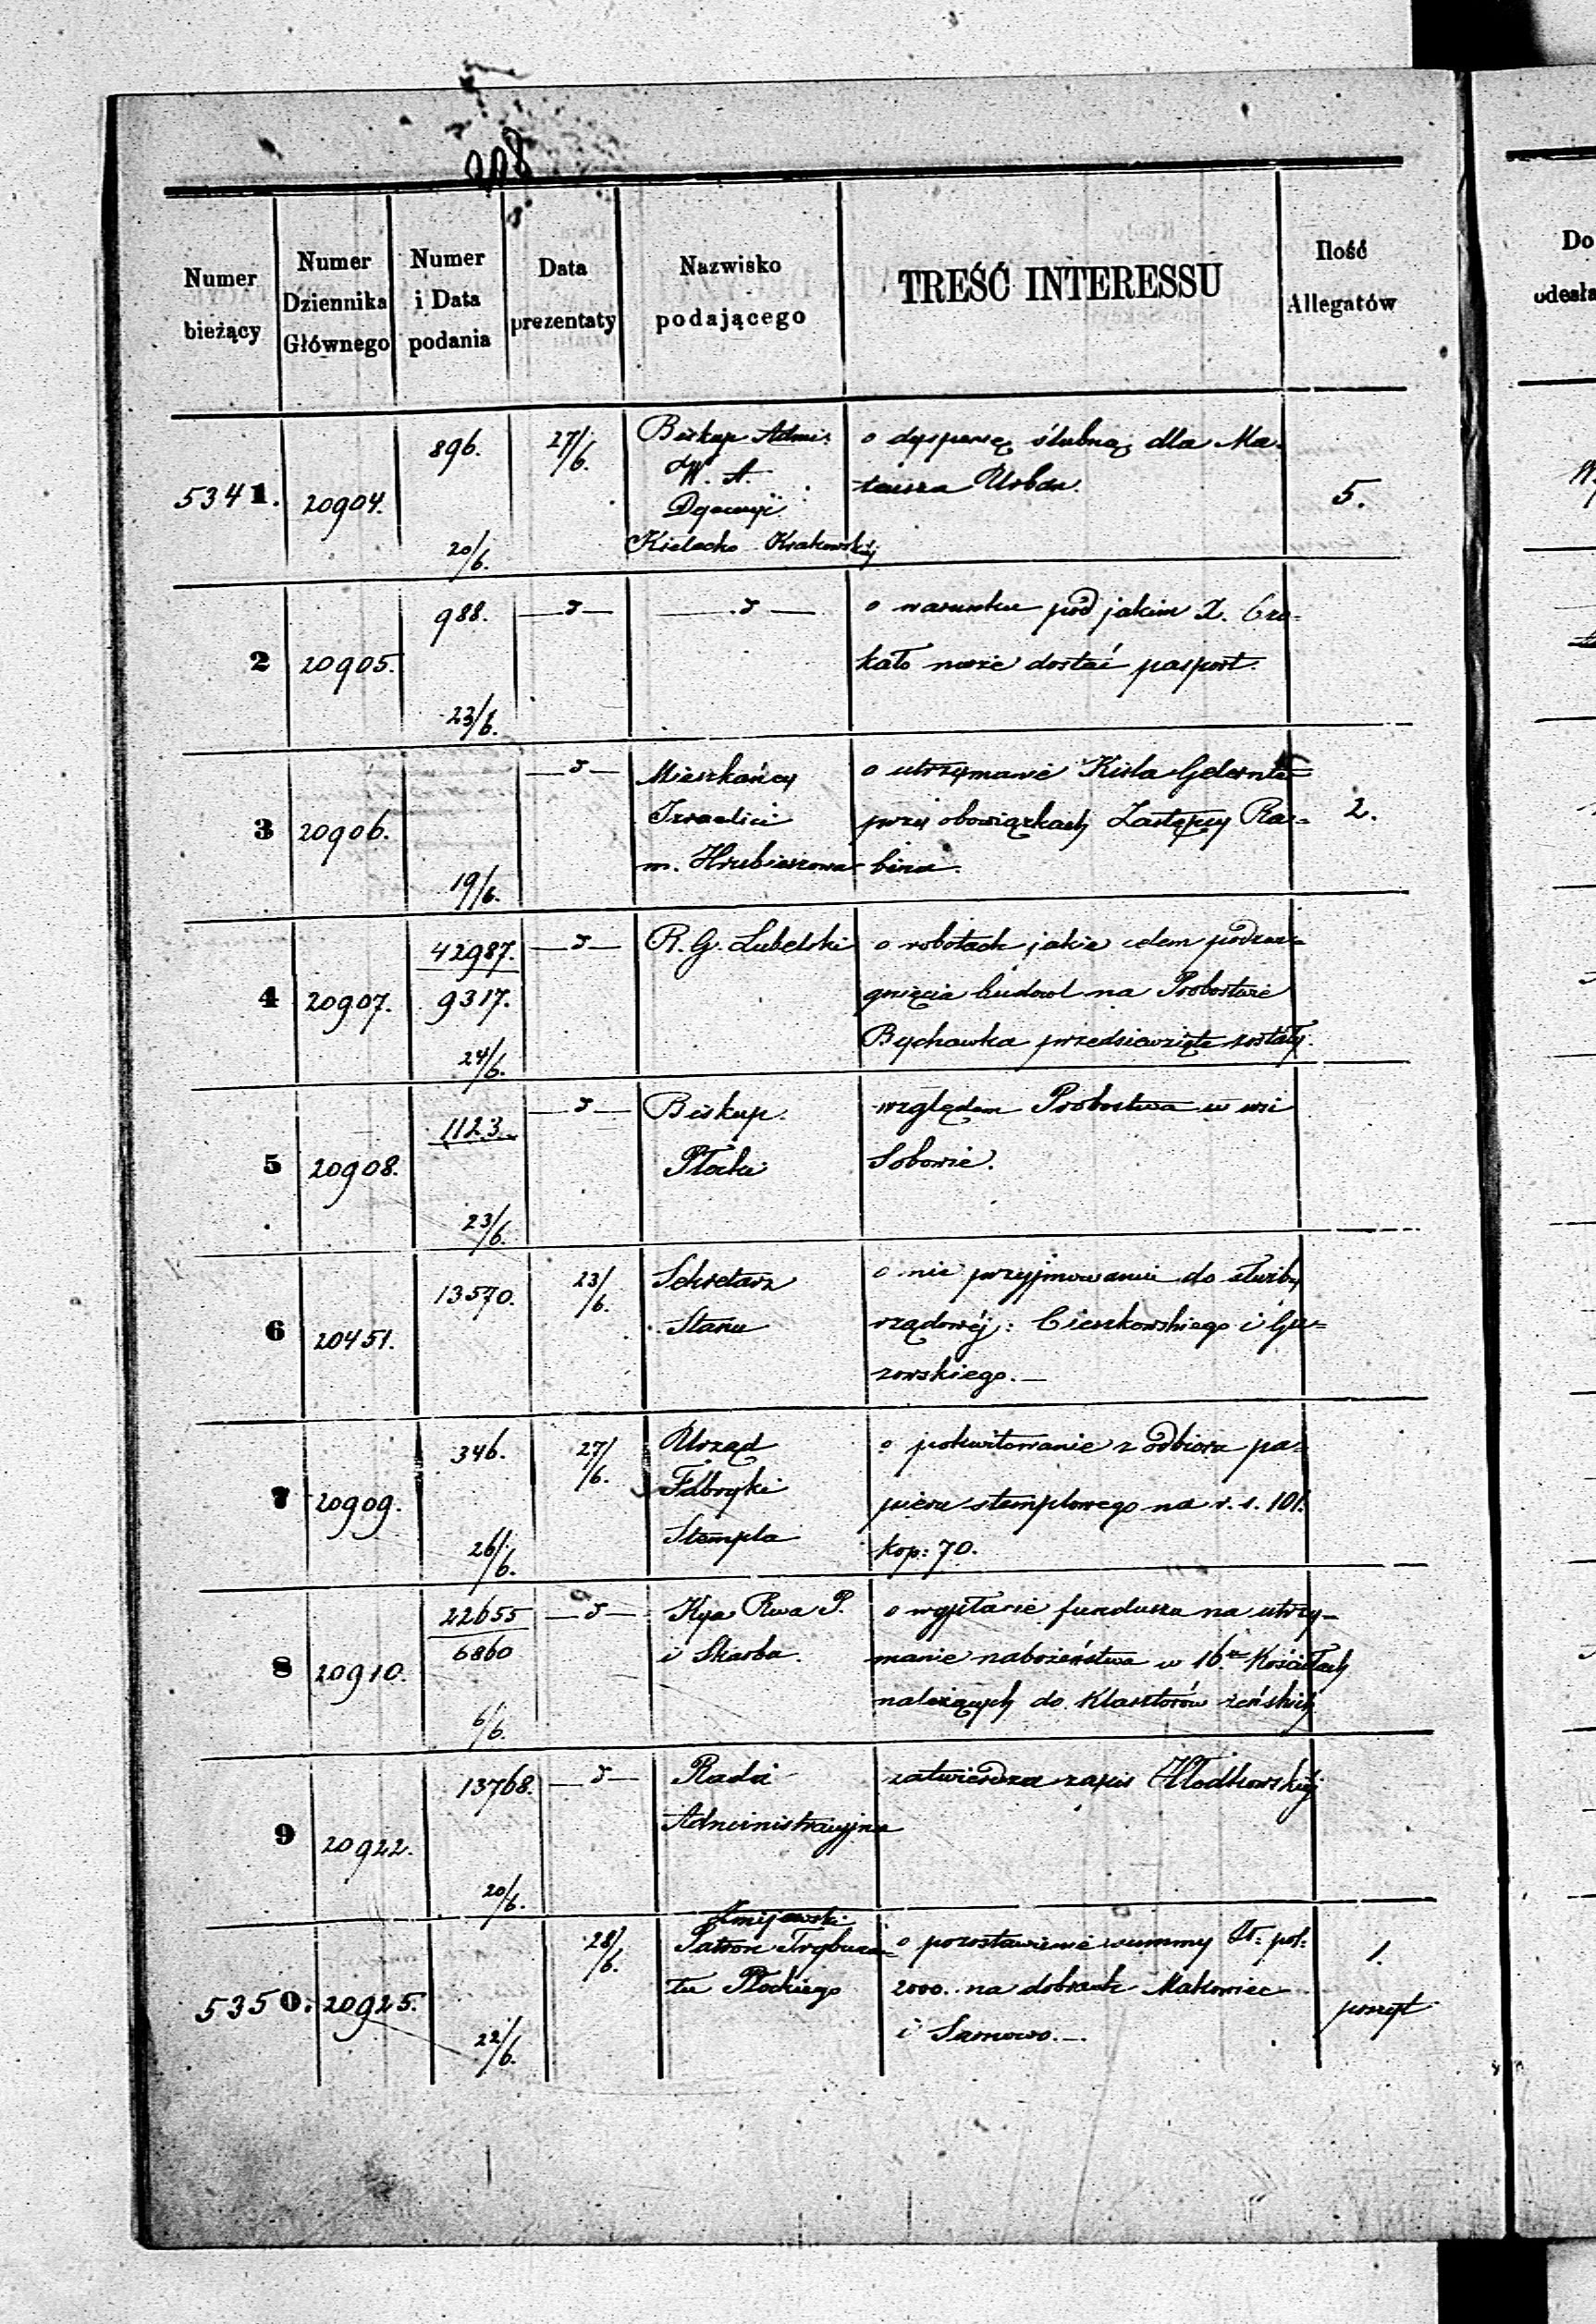 Numer bieżący
Numer Dziennika Głównego
Numer i Data podania
Data prezentaty
Nazwisko podającego
TREŚĆ INTERESSU
Ilość Allegatów
Do
odesła
5341. 20904. 896. 20/6. 27/6.
Biskup Admi:
W. A.
Dyecezji
Kielecko Krakowskiej
o dyspensę ślubną dla Ma-
teusza Urban.
5.
2 20905. 988. 23/6.
o warunku pod jakim X.
kało może dostać pasport.
3 20906. 19/6.
Mieszkańcy
Izraelici
m. Hrubieszowa
o utrzymanie Kisla
przy obowiązkach Zastępcy Ra=
bina.
2.
4 20907. 42987. 9317. 24/6.
R. G. Lubelski
o robotach jakie celem podzwi=
gnięcia budowl na Probostwie
Bychawka przedsięwzięte zostały.
5 20908. 1123. 23/6.
Biskup
Płocki
względem Probostwa w wsi
Sobowie.
6 20451. 13570. 23/6.
Sekretarz
Stanu
o nie przyjmowaniu do służby
rządowéj: Cieszkowskiego i Gu=
zowskiego.—
7 20909. 346. 26/6. 27/6.
Urząd
Fabryki
Stempla
o pokwitowanie z odbioru pa=
pieru stemplowego na r. s. 101.
kop: 70.
8 20910. 22655 6860 6/6.
Kya Rwa P.
i Skarbu.
o wypłacie funduszu na utrzy-
manie nabożeństwa w 16tu Kościołach
należących do Klasztorów żeńskich
9 20922. 13768. 20/6.
Rada
Administracyjna
zatwierdza zapis Włodkowskiéj
5350. 20925. 22/6. 28/6.
Żmijewski
Patron Trybuna=
łu Płockiego
o pozostawienie summy Zł: pol:
2000. na dobrach Makowiec
i Sarnowo.—
1.
poszyt